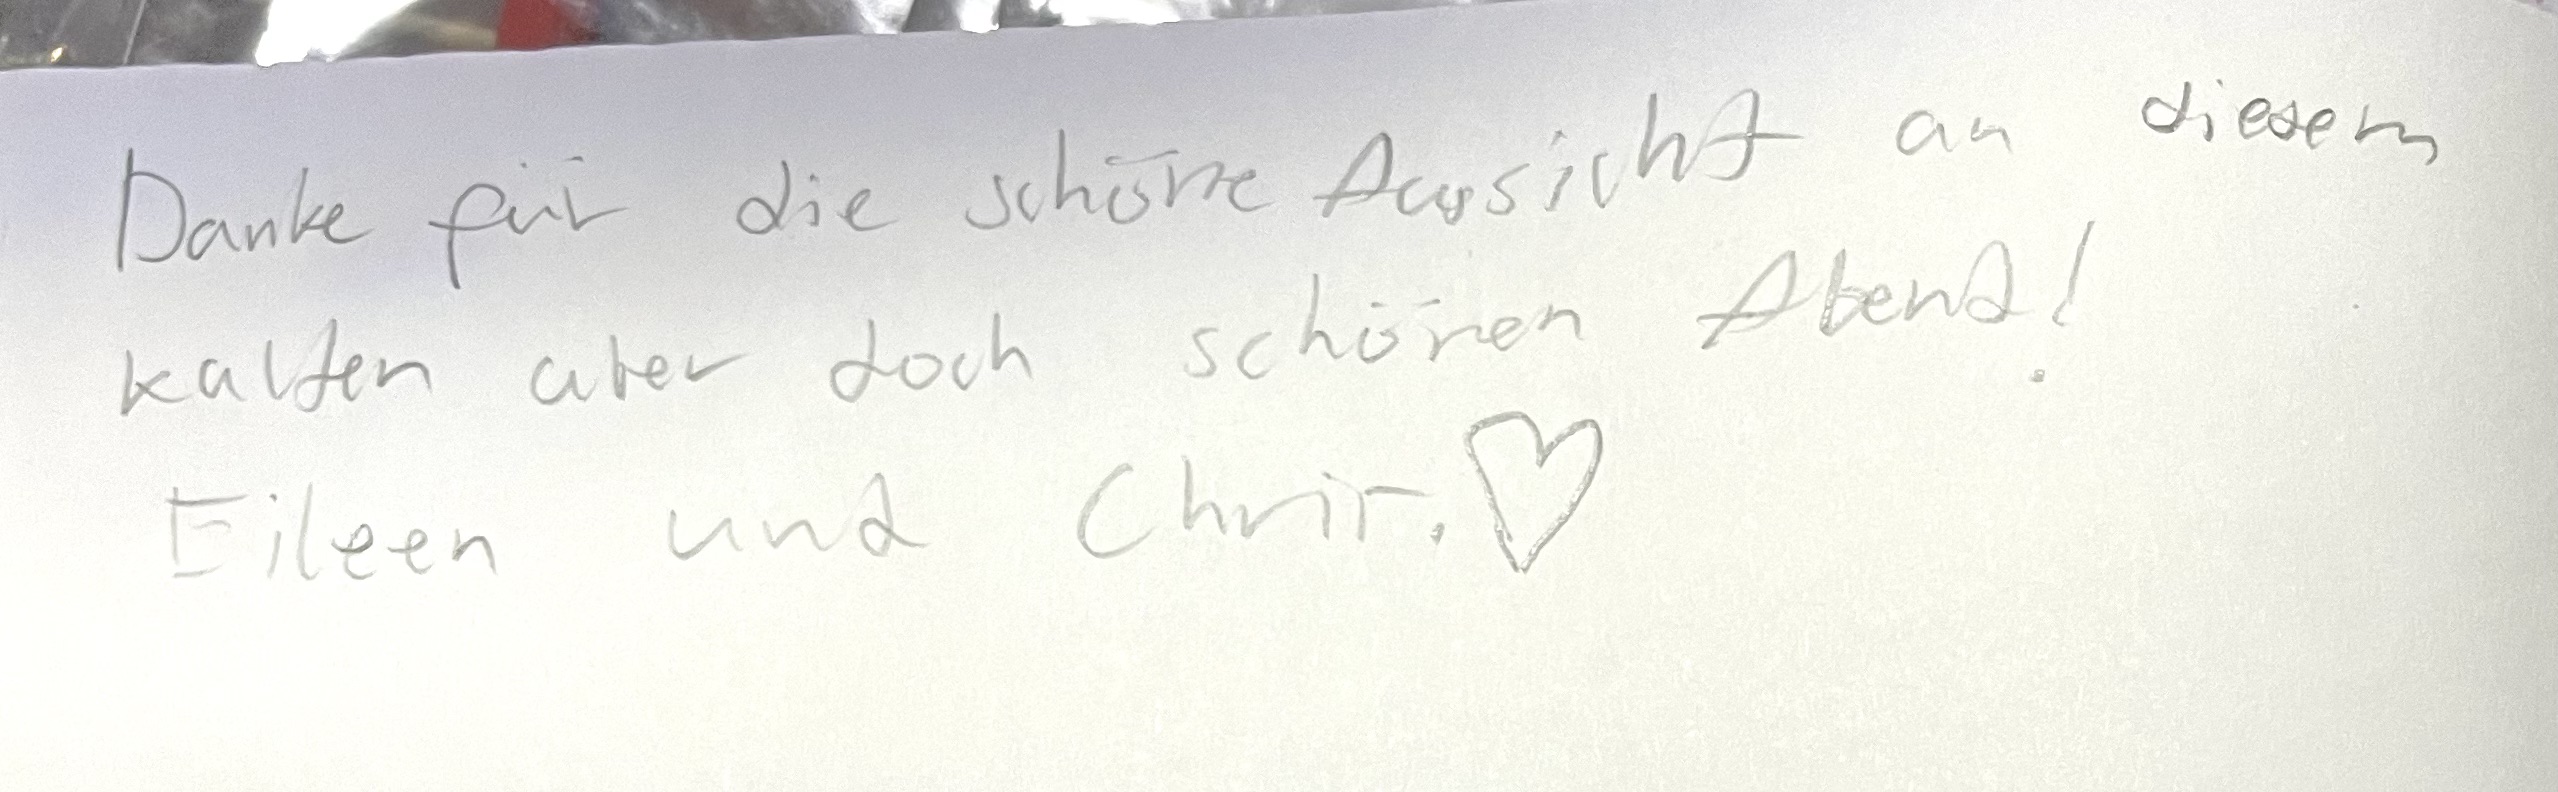 Danke für die schöne Aussicht an diesem
kalten aber doch schönen Abend!
Eileen und